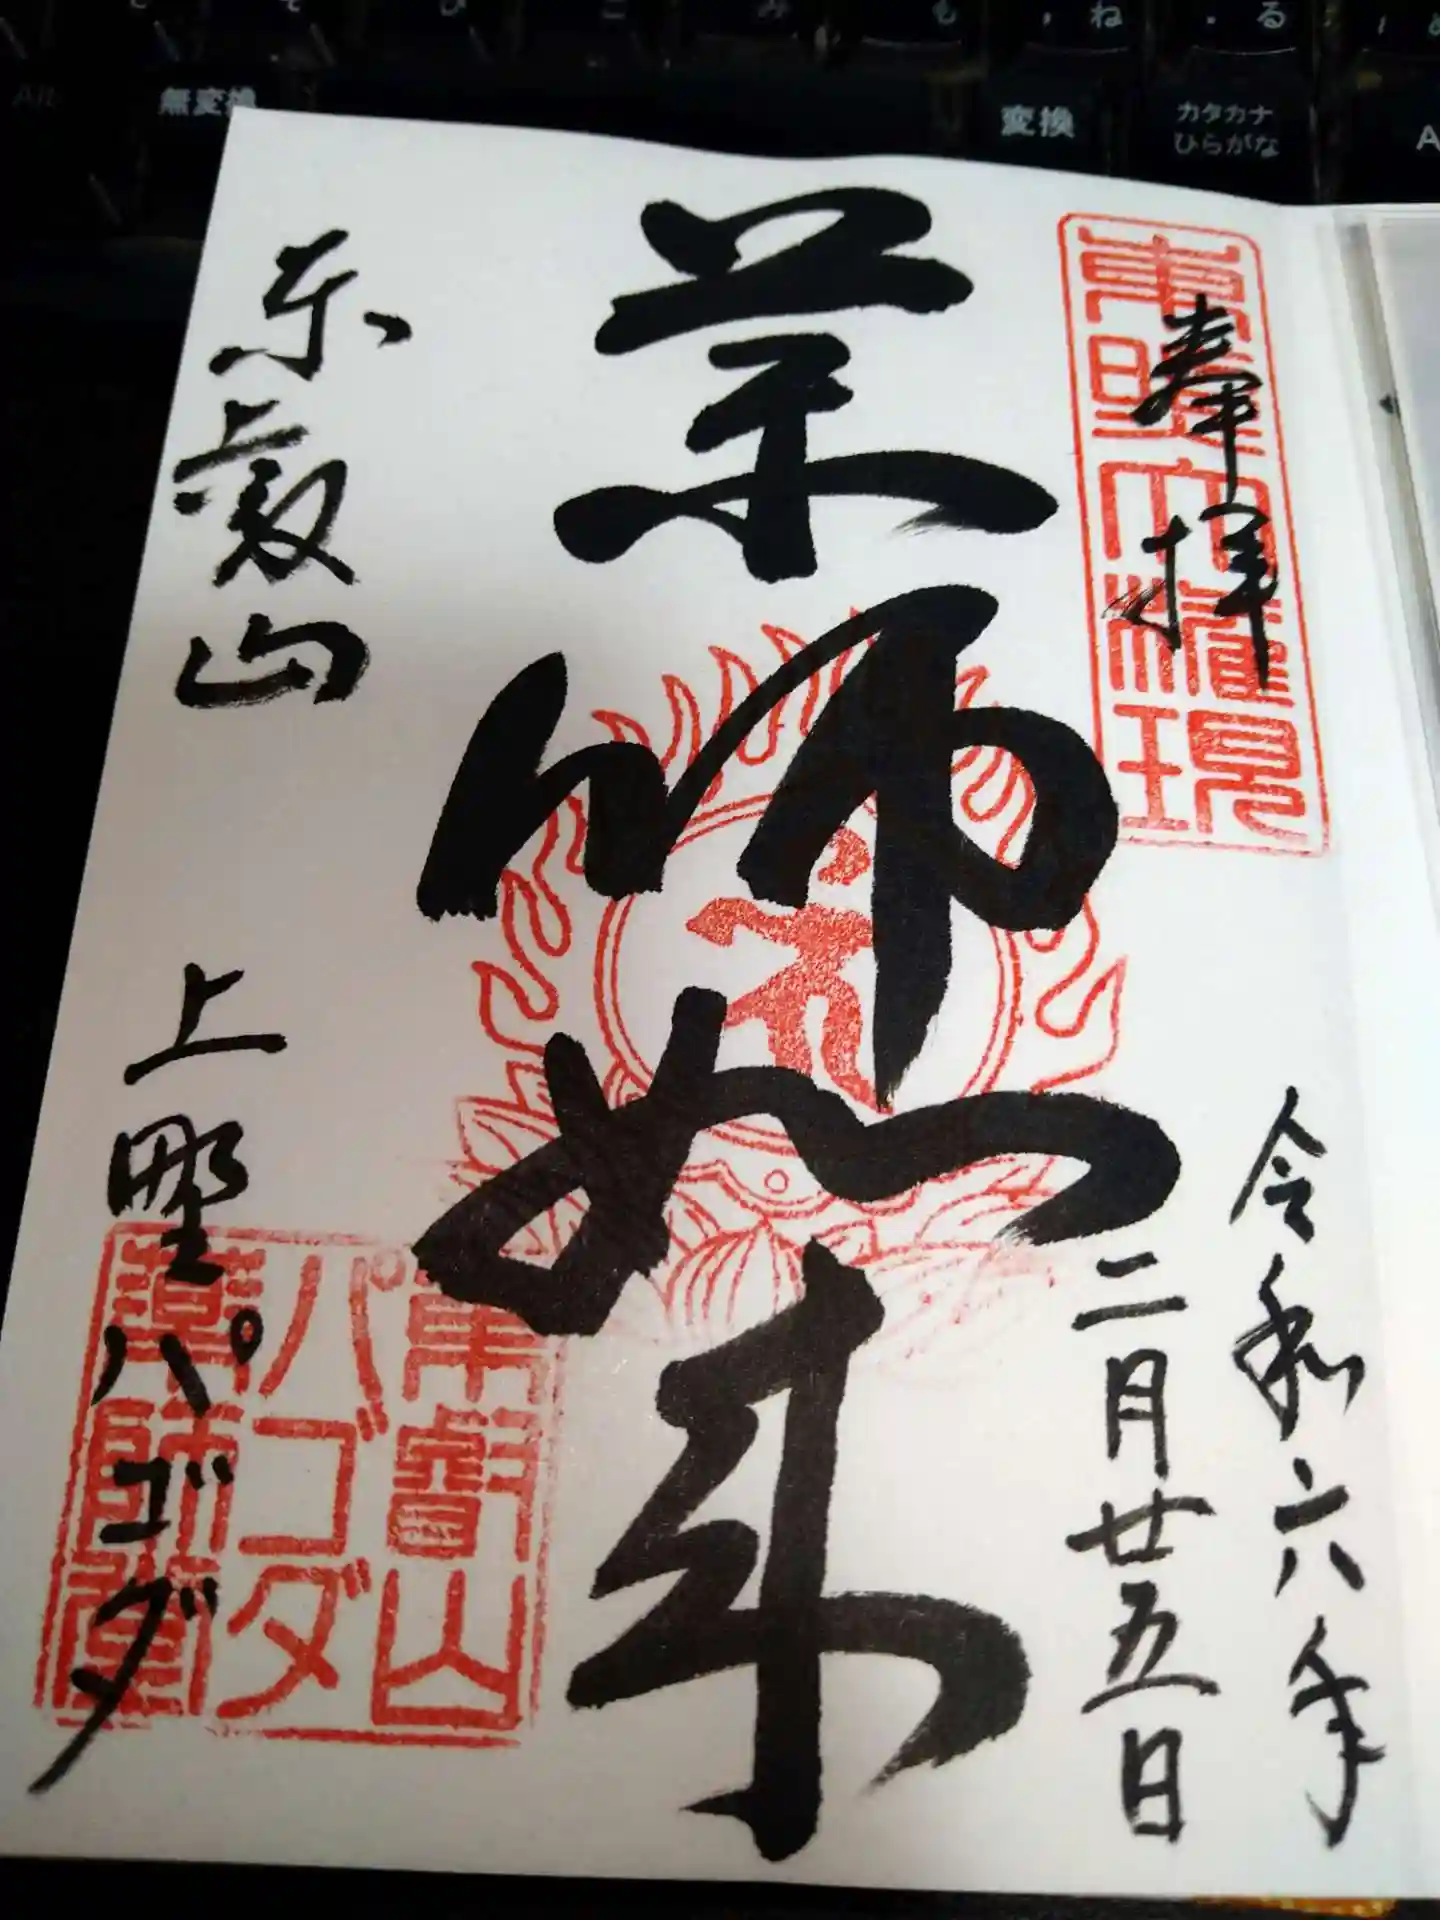 奉拝
東照大権現
令和六年
二月廿五日
薬師如来
東叡山
上野パゴダ
東叡山
パゴダ
薬師堂
無変換
変換
カタカナ
ひらがな
Alt